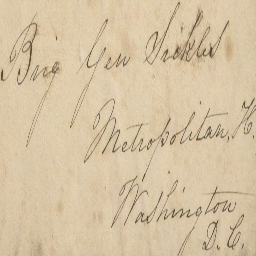 Brig Gen Sickles
Metropolitan, H.
Washington
D.C.